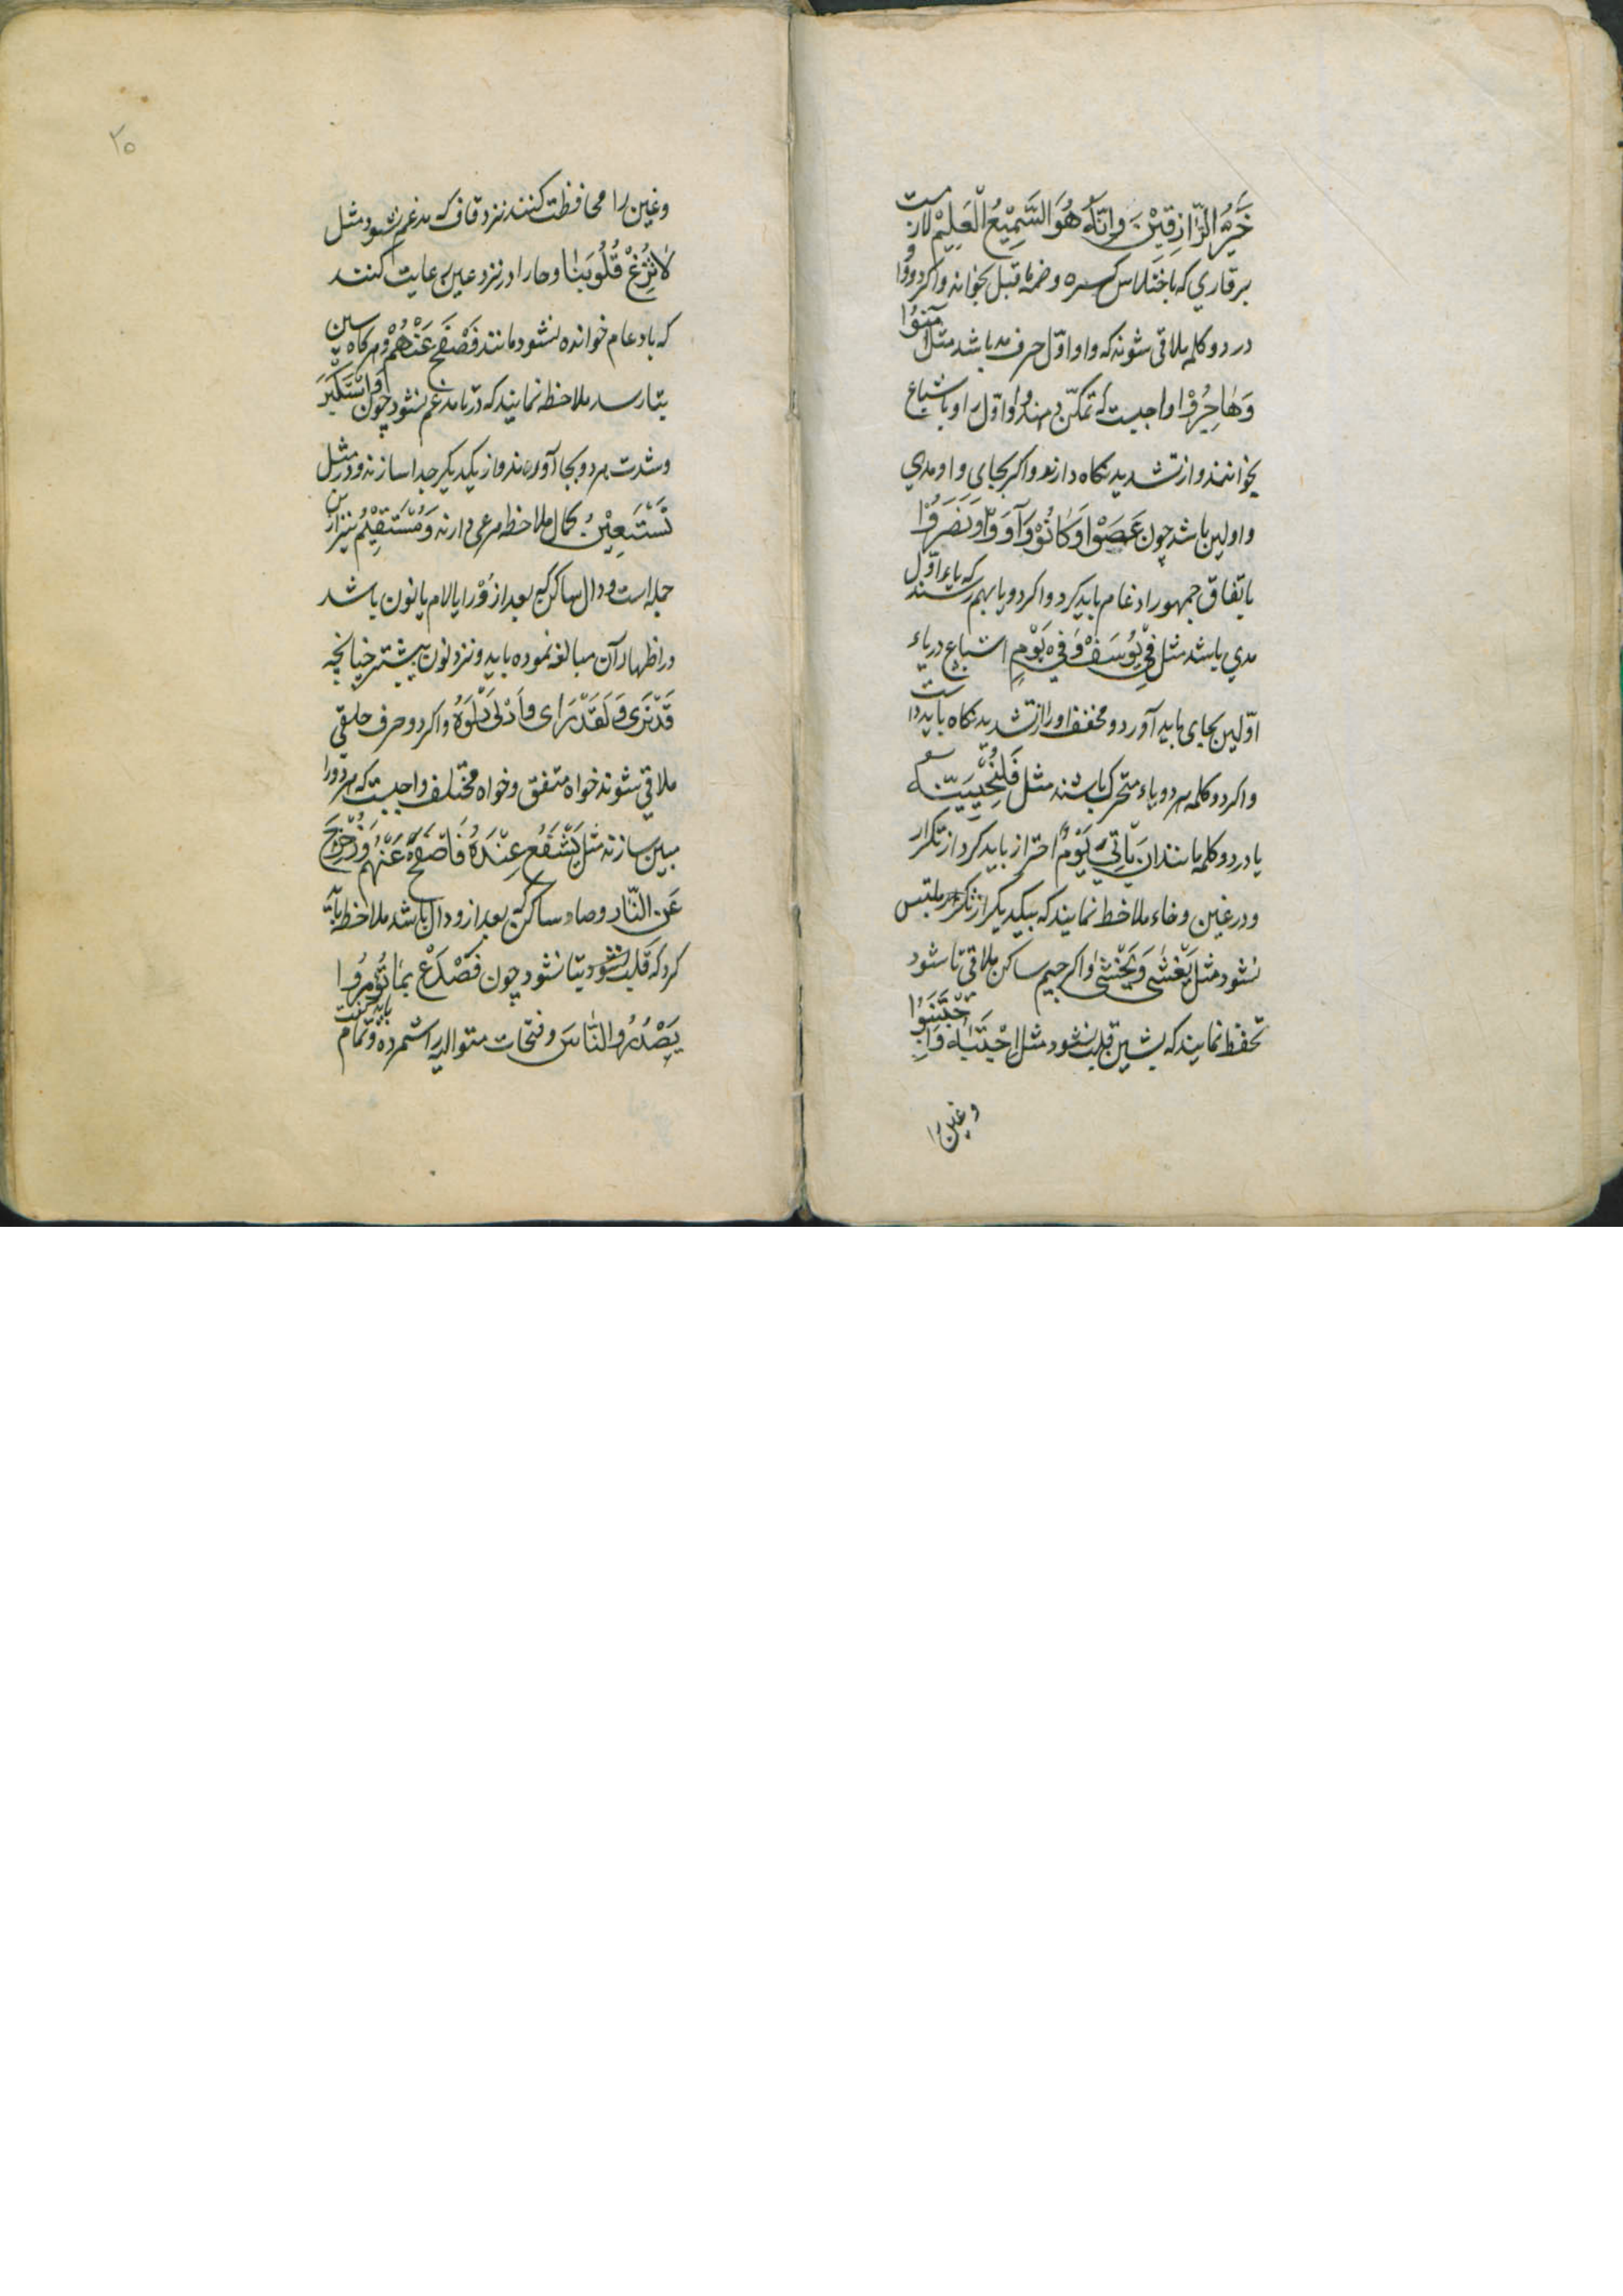 خَیْرُ الرَّازِقِیْنَ وَاِنَّهُ هُوَ السَّمِیْعُ الْعَلِیْمُ لازمست
بر قاري که باختلاس کسره و ضمهٔ ما قبل بخواند و اکر دو واو
در دو کلمه ملاقی شوند که واو اوّل حرف مد باشد مثل اٰمَنُوْا
وَهٰاجِرُوْا واجبست که تمکّن دهند واو اوّل را و باشباع
بخوانند و از تشدید نکاه دارند و اکر بجای واو مدي
واو لین باشد چون عَصَوْا وَکٰانُوْا وَ اٰوَوْا وَنَصَرُوْا
باتفاق جمهور ادغام باید کرد و اکر دو یا بهم رسند که یاء اوّل
مدي باشد مثل فِيْ یُوْسُفَ وَ فِيْ یَوْمٍ اشباع در یاء
اوّلین بجاي باید آورد و مخفف او را از تشدید نکاه باید داشت
و اکر دو کلمه هر دو یاء متحرک باشند مثل فَلَنُحْیِیَنَّهُ
یا در دو کلمه مانند اَنْ یَأْتِيَ یَوْمٌ احتراز باید کرد از تکرار
و در غین و خاء ملاحظه نمایند که بیکدیکر از تکرار ملتبس
نشود مثل یَغْشٰی وَ یَخْشٰی و اکر جیم ساکن ملاقی تا شود
تحفّظ نمایند که بشین قلب نشود مثل اِجْتَبٰاهُ وَاجْتَنِبُوْا
و غین را
۲۰
و غین را محافظت کنند نزد قاف که مدغم نشود مثل
لاٰتُزِغْ قُلُوبَنٰا و حا را در نزد عین رعایت کنند
که بادغام خوانده نشود مانند فَصْفَحْ عَنْهُمْ و هرکاه سین
بتا رسد ملاحظه نمایند که در تا مدغم نشود چون وَاسْتَکْبَرَ
و شدت هر دو بجا آورند و از یکدیکر جدا سازند و در مثل
نَسْتَعِیْنُ کمال ملاحظه مرعی دارند وَمُسْتَقِیْمُ نیز از این
جمله است و دال ساکن که بعد از وُ را یا لام یا نون باشد
در اظهار آن مبالغه نموده باید و نزد نون بیشتر چنانچه
قَدْ نَرٰی وَ لَقَدْ رَاٰی و اَدْلٰی دَلْوَهُ و اکر دو حرف حلقي
ملاقی شوند خواه متفق و خواه مختلف واجبست که هر دو را
مبین سازند مثل یَشْفَعُ عِنْدَهُ فَاصْفَحْ عَنْهُمْ وَ زُحْزِحَ
عَنِ النَّارِ و صاد ساکن که بعد از و دال باشد ملاحظه باید
کرد که قلب نشود بتا نشود چون فَصْدَعْ بِمٰا تُؤْمَرُوا
یَصْدُرُ وا النَّاسَ و فتحات متوالیه را شمرده و تمام باید کفت